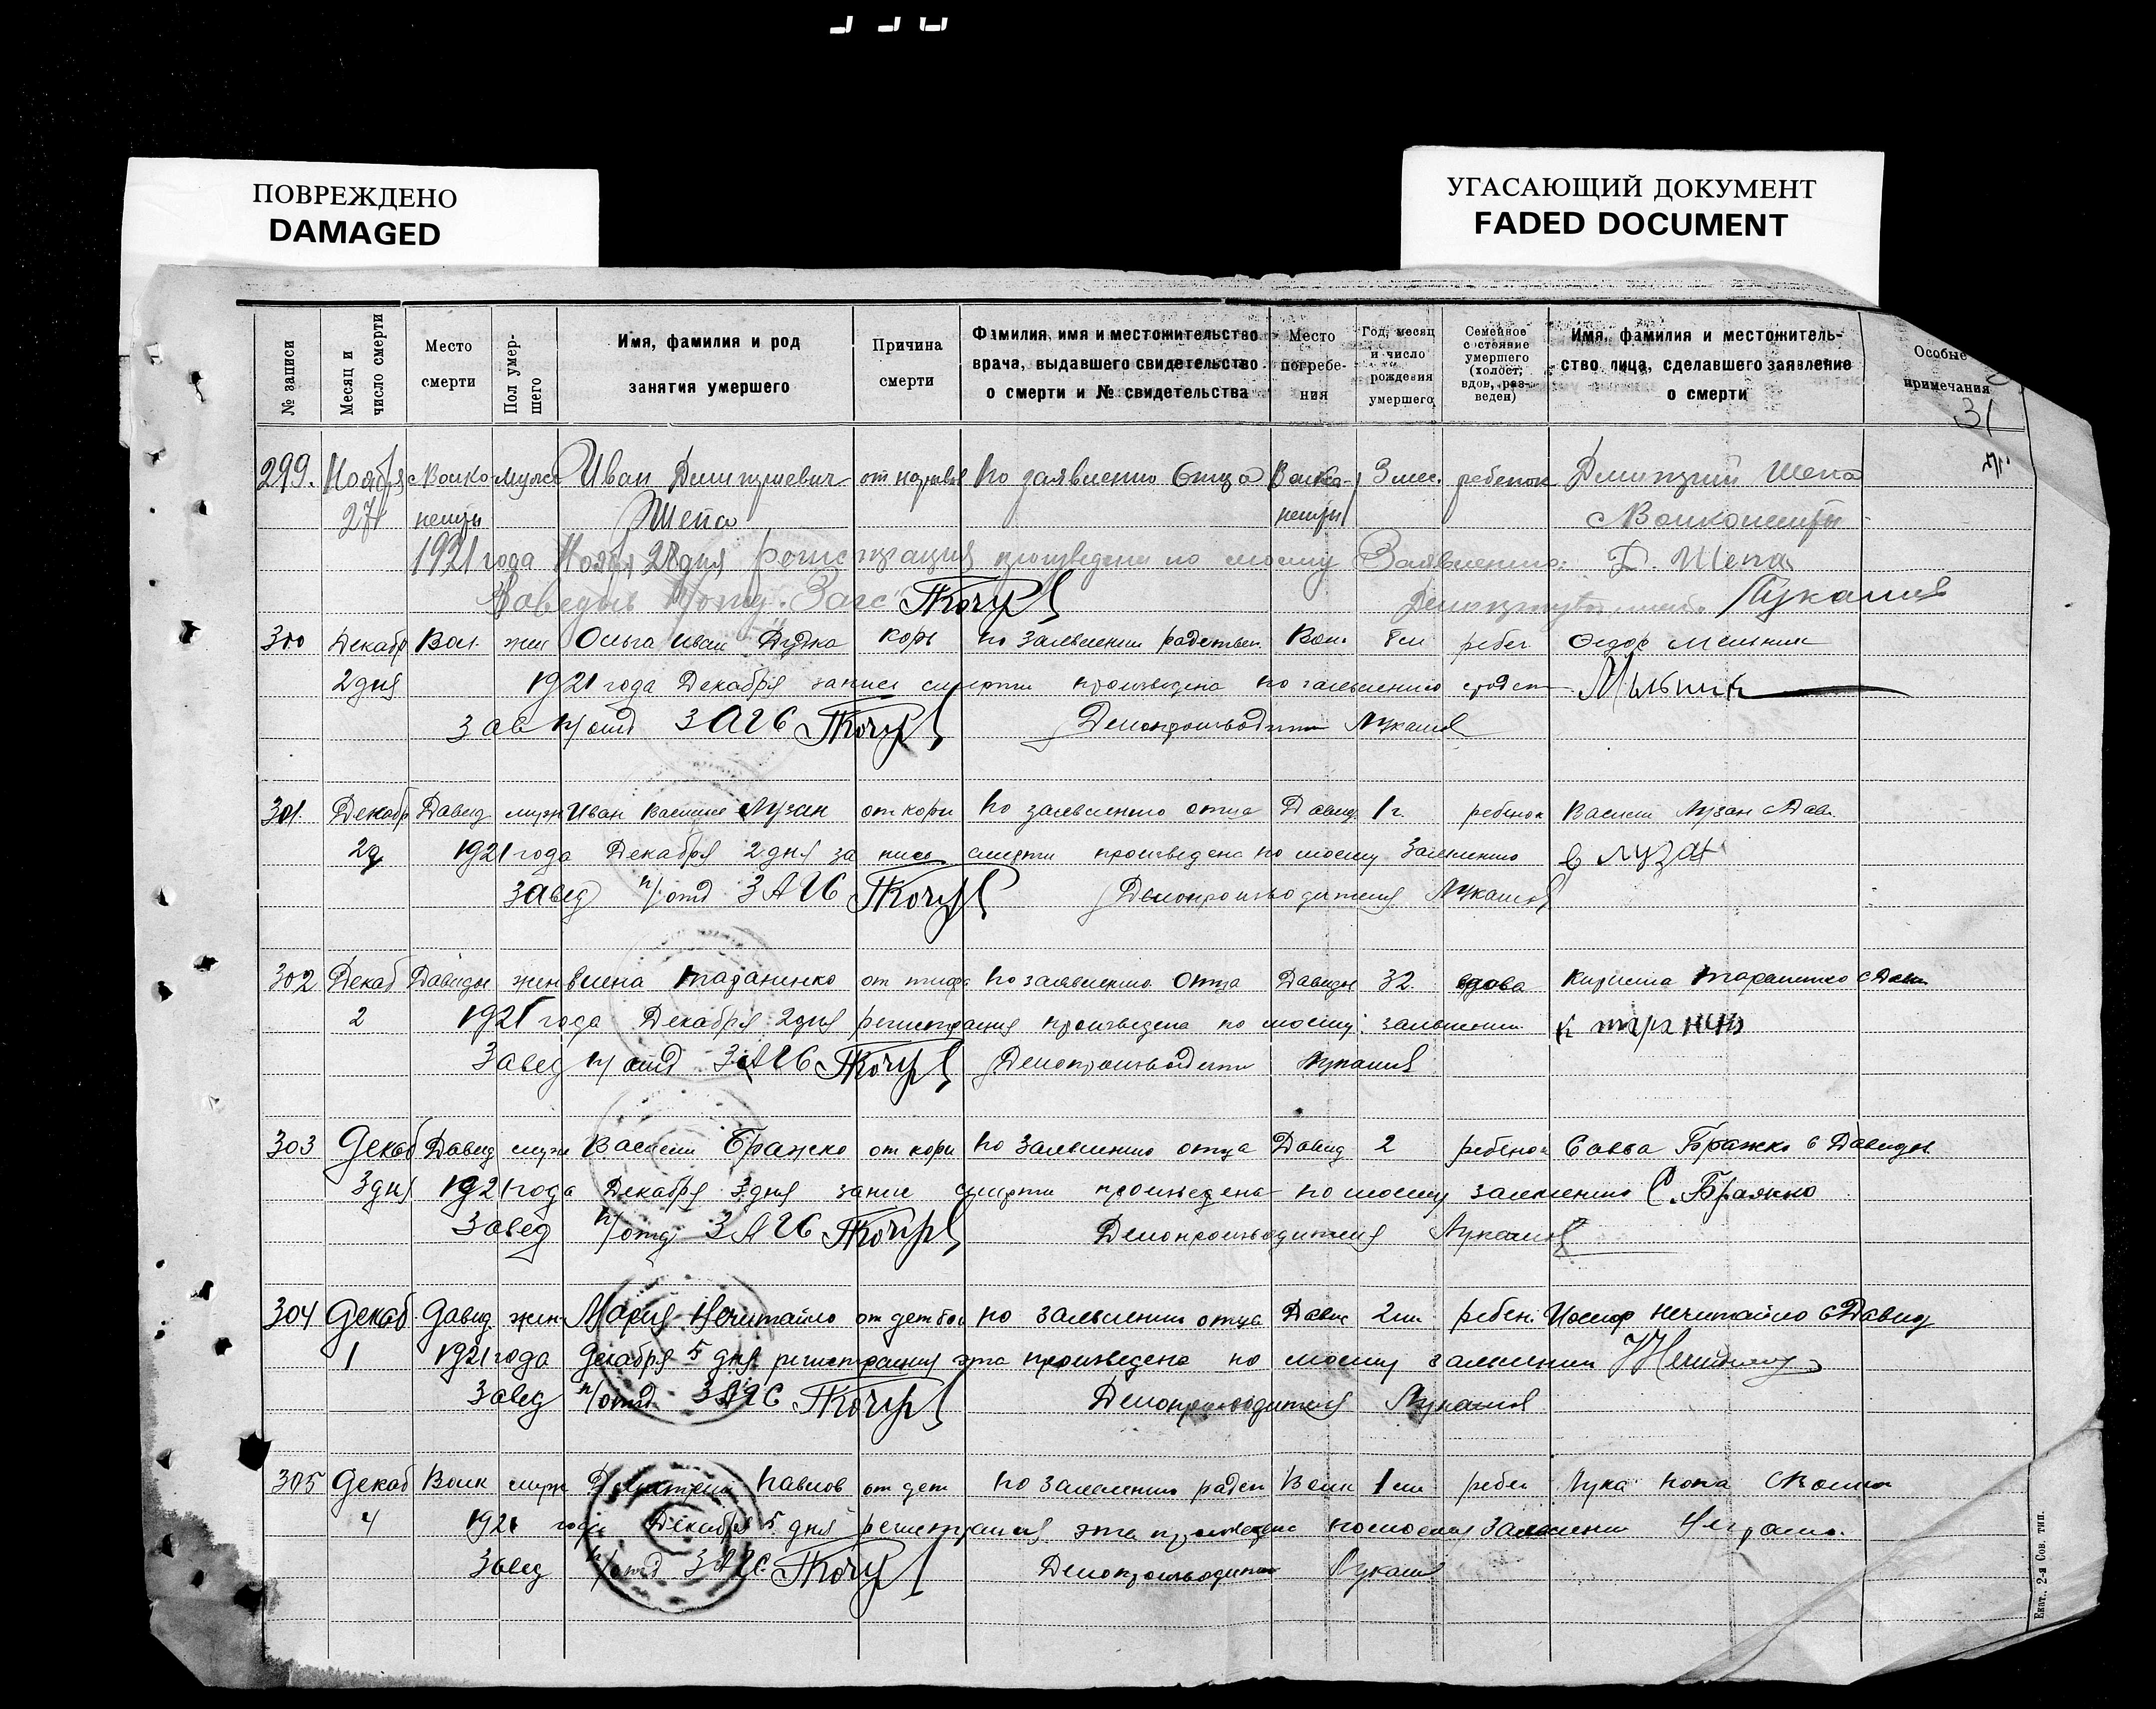 ПОВРЕЖДЕНО
DAMAGED
УГАСАЮЩИЙ ДОКУМЕНТ
FADED DOCUMENT
№ записи
Месяц и число смерти
Место смерти
Пол умер-шего
Имя, фамилия и род занятия умершего
Причина смерти
Фамилия, имя и местожительство врача, выдавшего свидетельство о смерти и № свидетельства
Место погребе-ния
Год, месяц и число рождения умершего
Семейное состояние умершего (холост, вдов, раз-веден)
Имя, фамилия и местожитель-ство лица, сделавшего заявление о смерти
Особые примечания
31
299. Ноября с Волко муж Иван Дмитриевич по заявлению Отца Волко- 3 мес. ребенок Дмитрий Шепа
27 нешты Шепа нешты с Волконешты
1921 года Нояб 28 дня регистрация произведена по моему Заявлению: Д. Шепа
Заведыв п/отд. Загс Лукашов
300 Декабр Вол. жен Ольга Иван корь по заявлению родствен. Вол. 8 м ребен Федор Мельник
2 дня 1921 года Декабря запись смерти произведена по заявлению Мельник
Зав п/отд ЗАГС Делопроизводит Лукашов
301. Декабр Давид муж Иван Василие Лузан от кори по заявлению отца Давид 1 г. ребенок Василий Лузан с Дави.
2 д 1921 года Декабря 2 дня запись смерти произведена по моему Заявлению В Лузан
Завед п/отд ЗАГС Делопроизводителя Лукашов
302 Декаб Давиды жен Елена Тараненко от тифа по заявлению Отца Давиды 32 вдова Кирилла Тараненко с Дави
2 1921 года Декабря 2 дня регистрация произведена по моему заявлению К
Завед п/отд ЗАГС Делопроизводит Лукашов
303 Декаб Давид муж Василий Бражко от кори по заявлению отца Давид 2 ребенок Савва Бражко с Давиды
3 дня 1921 года Декабря 3 дня запис смерти произведена по моему заявлению С. Бражко
Завед п/отд ЗАГС Делопроизводителя Лукашов
304 Декаб. Давид жен Мария Нечитайло от дет бол по заявлению отца Давид 2 м. ребен. Иосиф Нечитайло с Давид
1 1921 года Декабря 5 дня регистрация эта произведена по моему заявлению
Завед п/отд ЗАГС Делопроизводителя Лукашов
305 Декаб Волк муж Дмитрий Павлов от дет по заявлению Волк 1 м ребен Лука Попа с Волко
4 1921 года Декабря 5 дня регистрация эта произведена по моему Заявлению
Завед п/отд ЗАГС Делопроизводит Лукаш
Екат. 2-я Сов. тип.